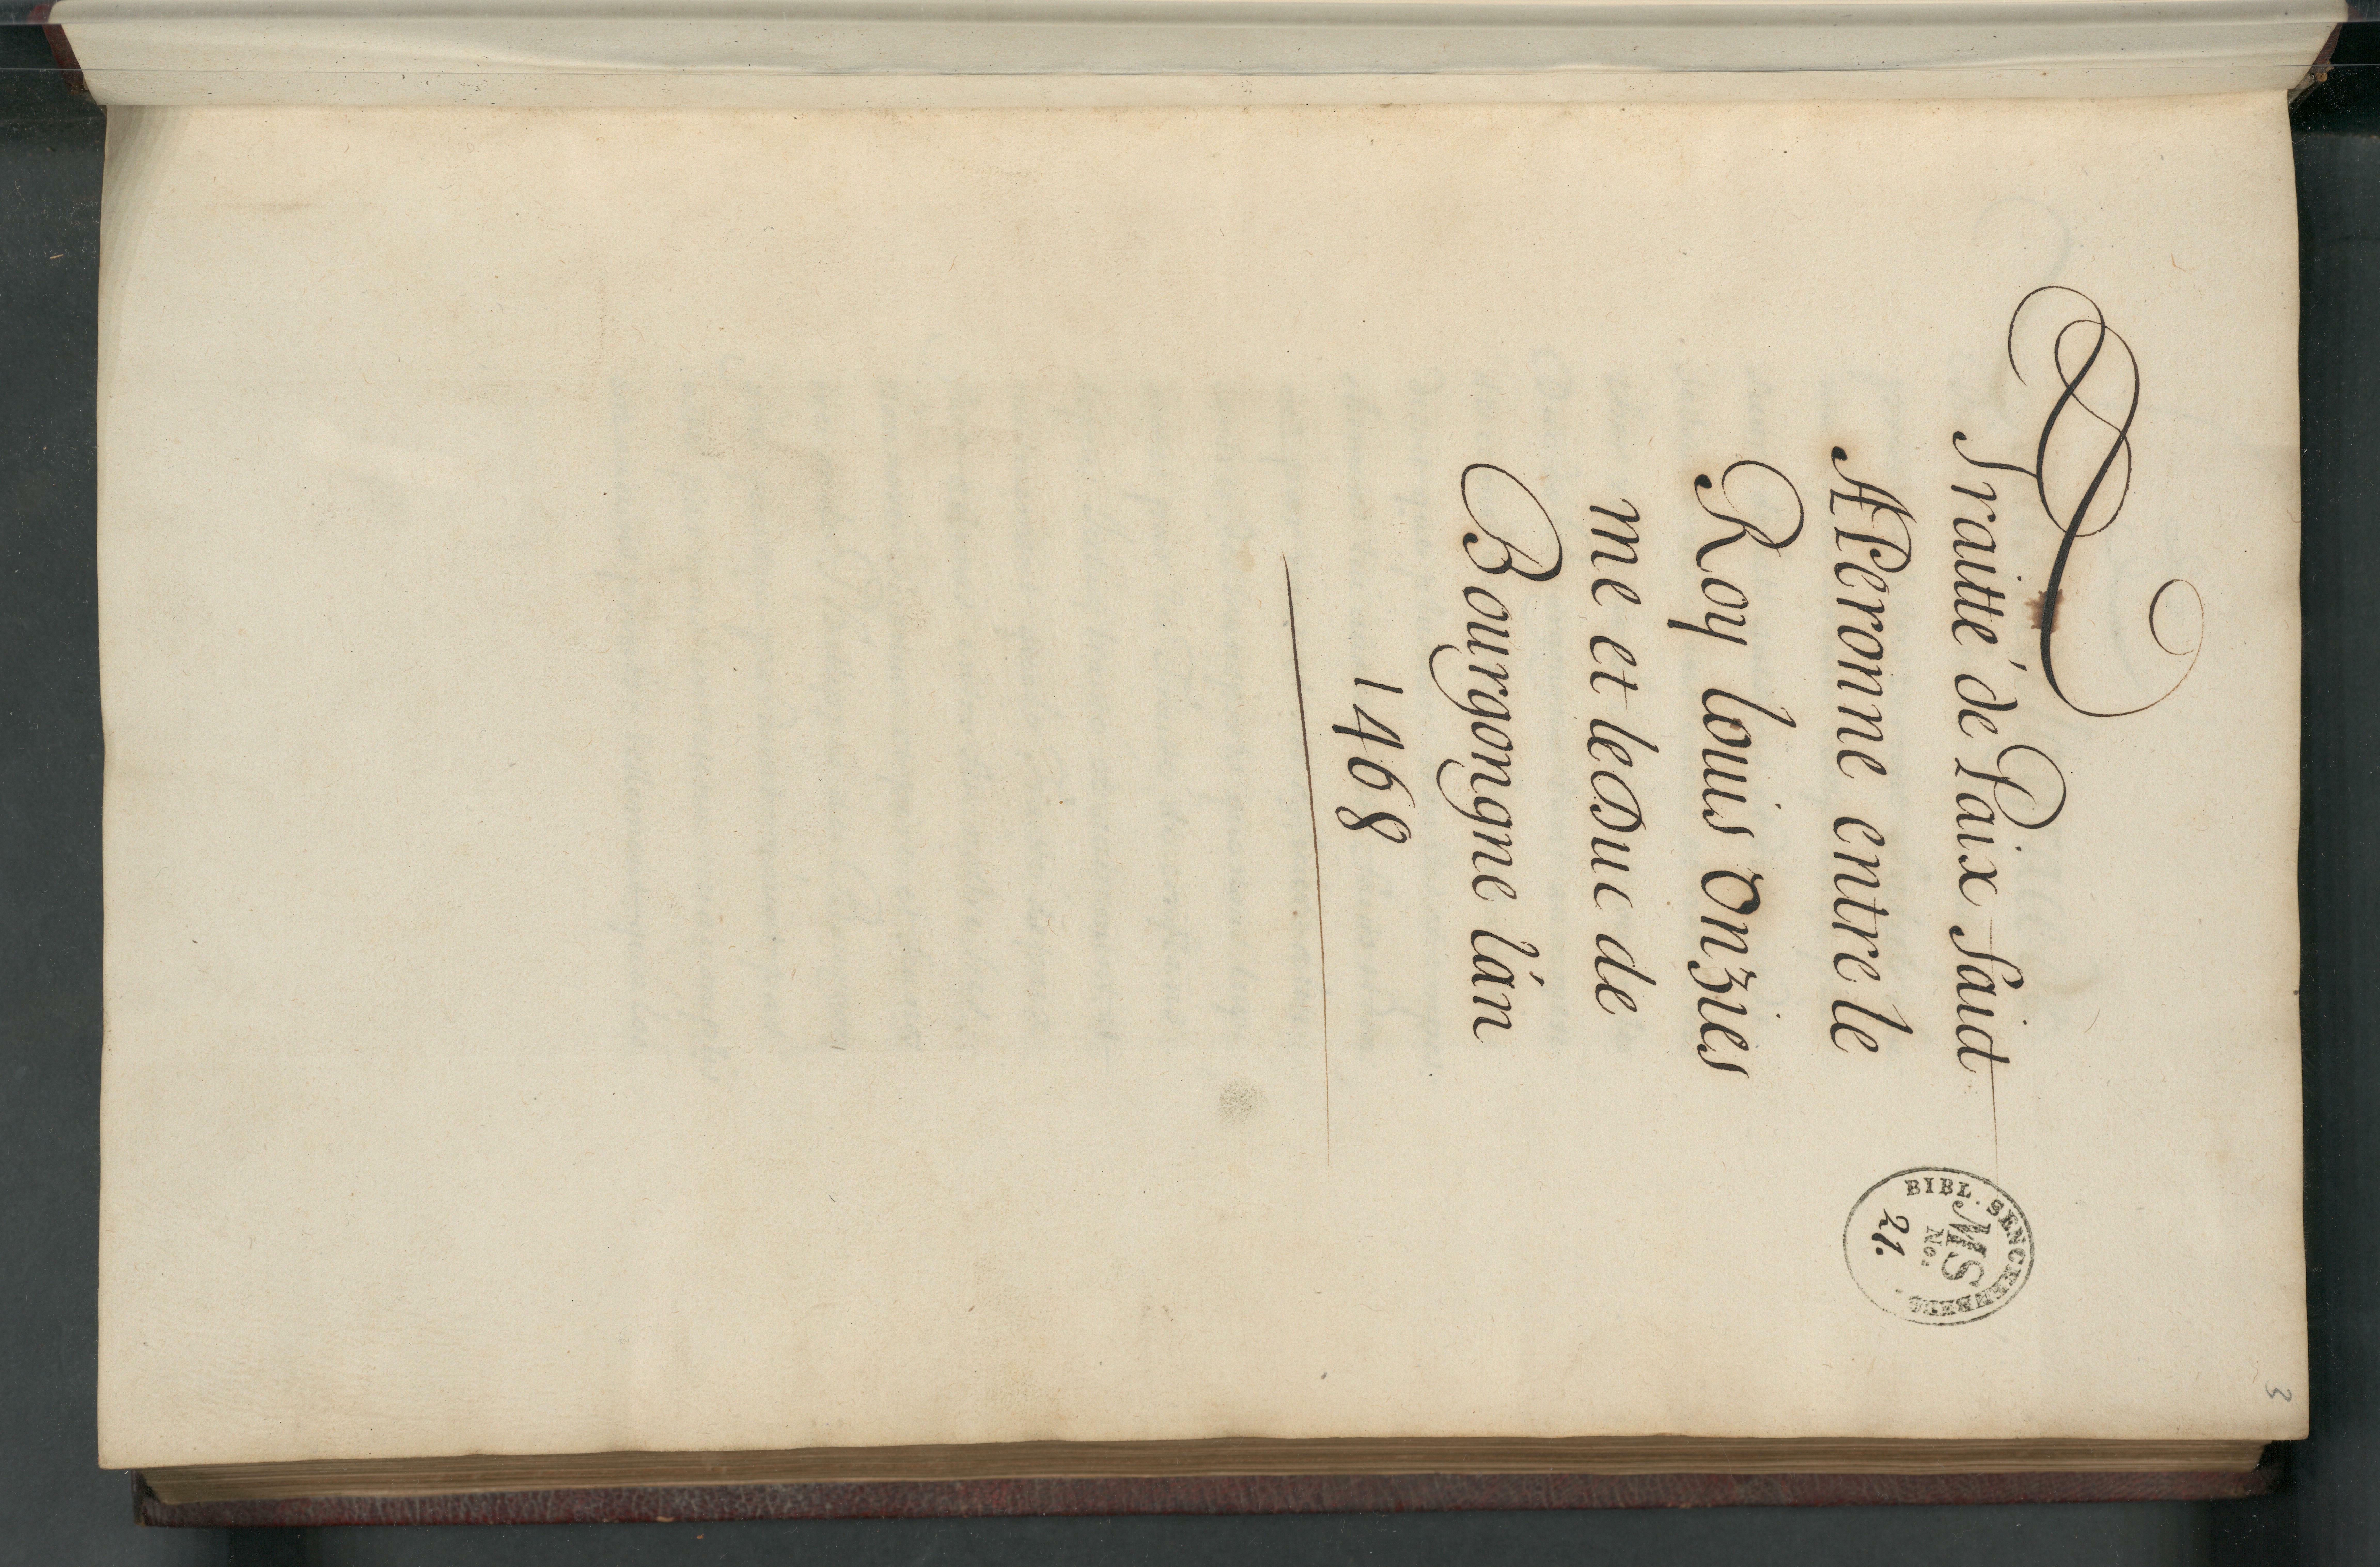 Traitté de Paix Faict
A Peronne entre le
Roy Louis Onzies
me et le Duc de
Bourgongne l'an
1468
BIBL. SENCKENBERG
MS
No:
21.
3